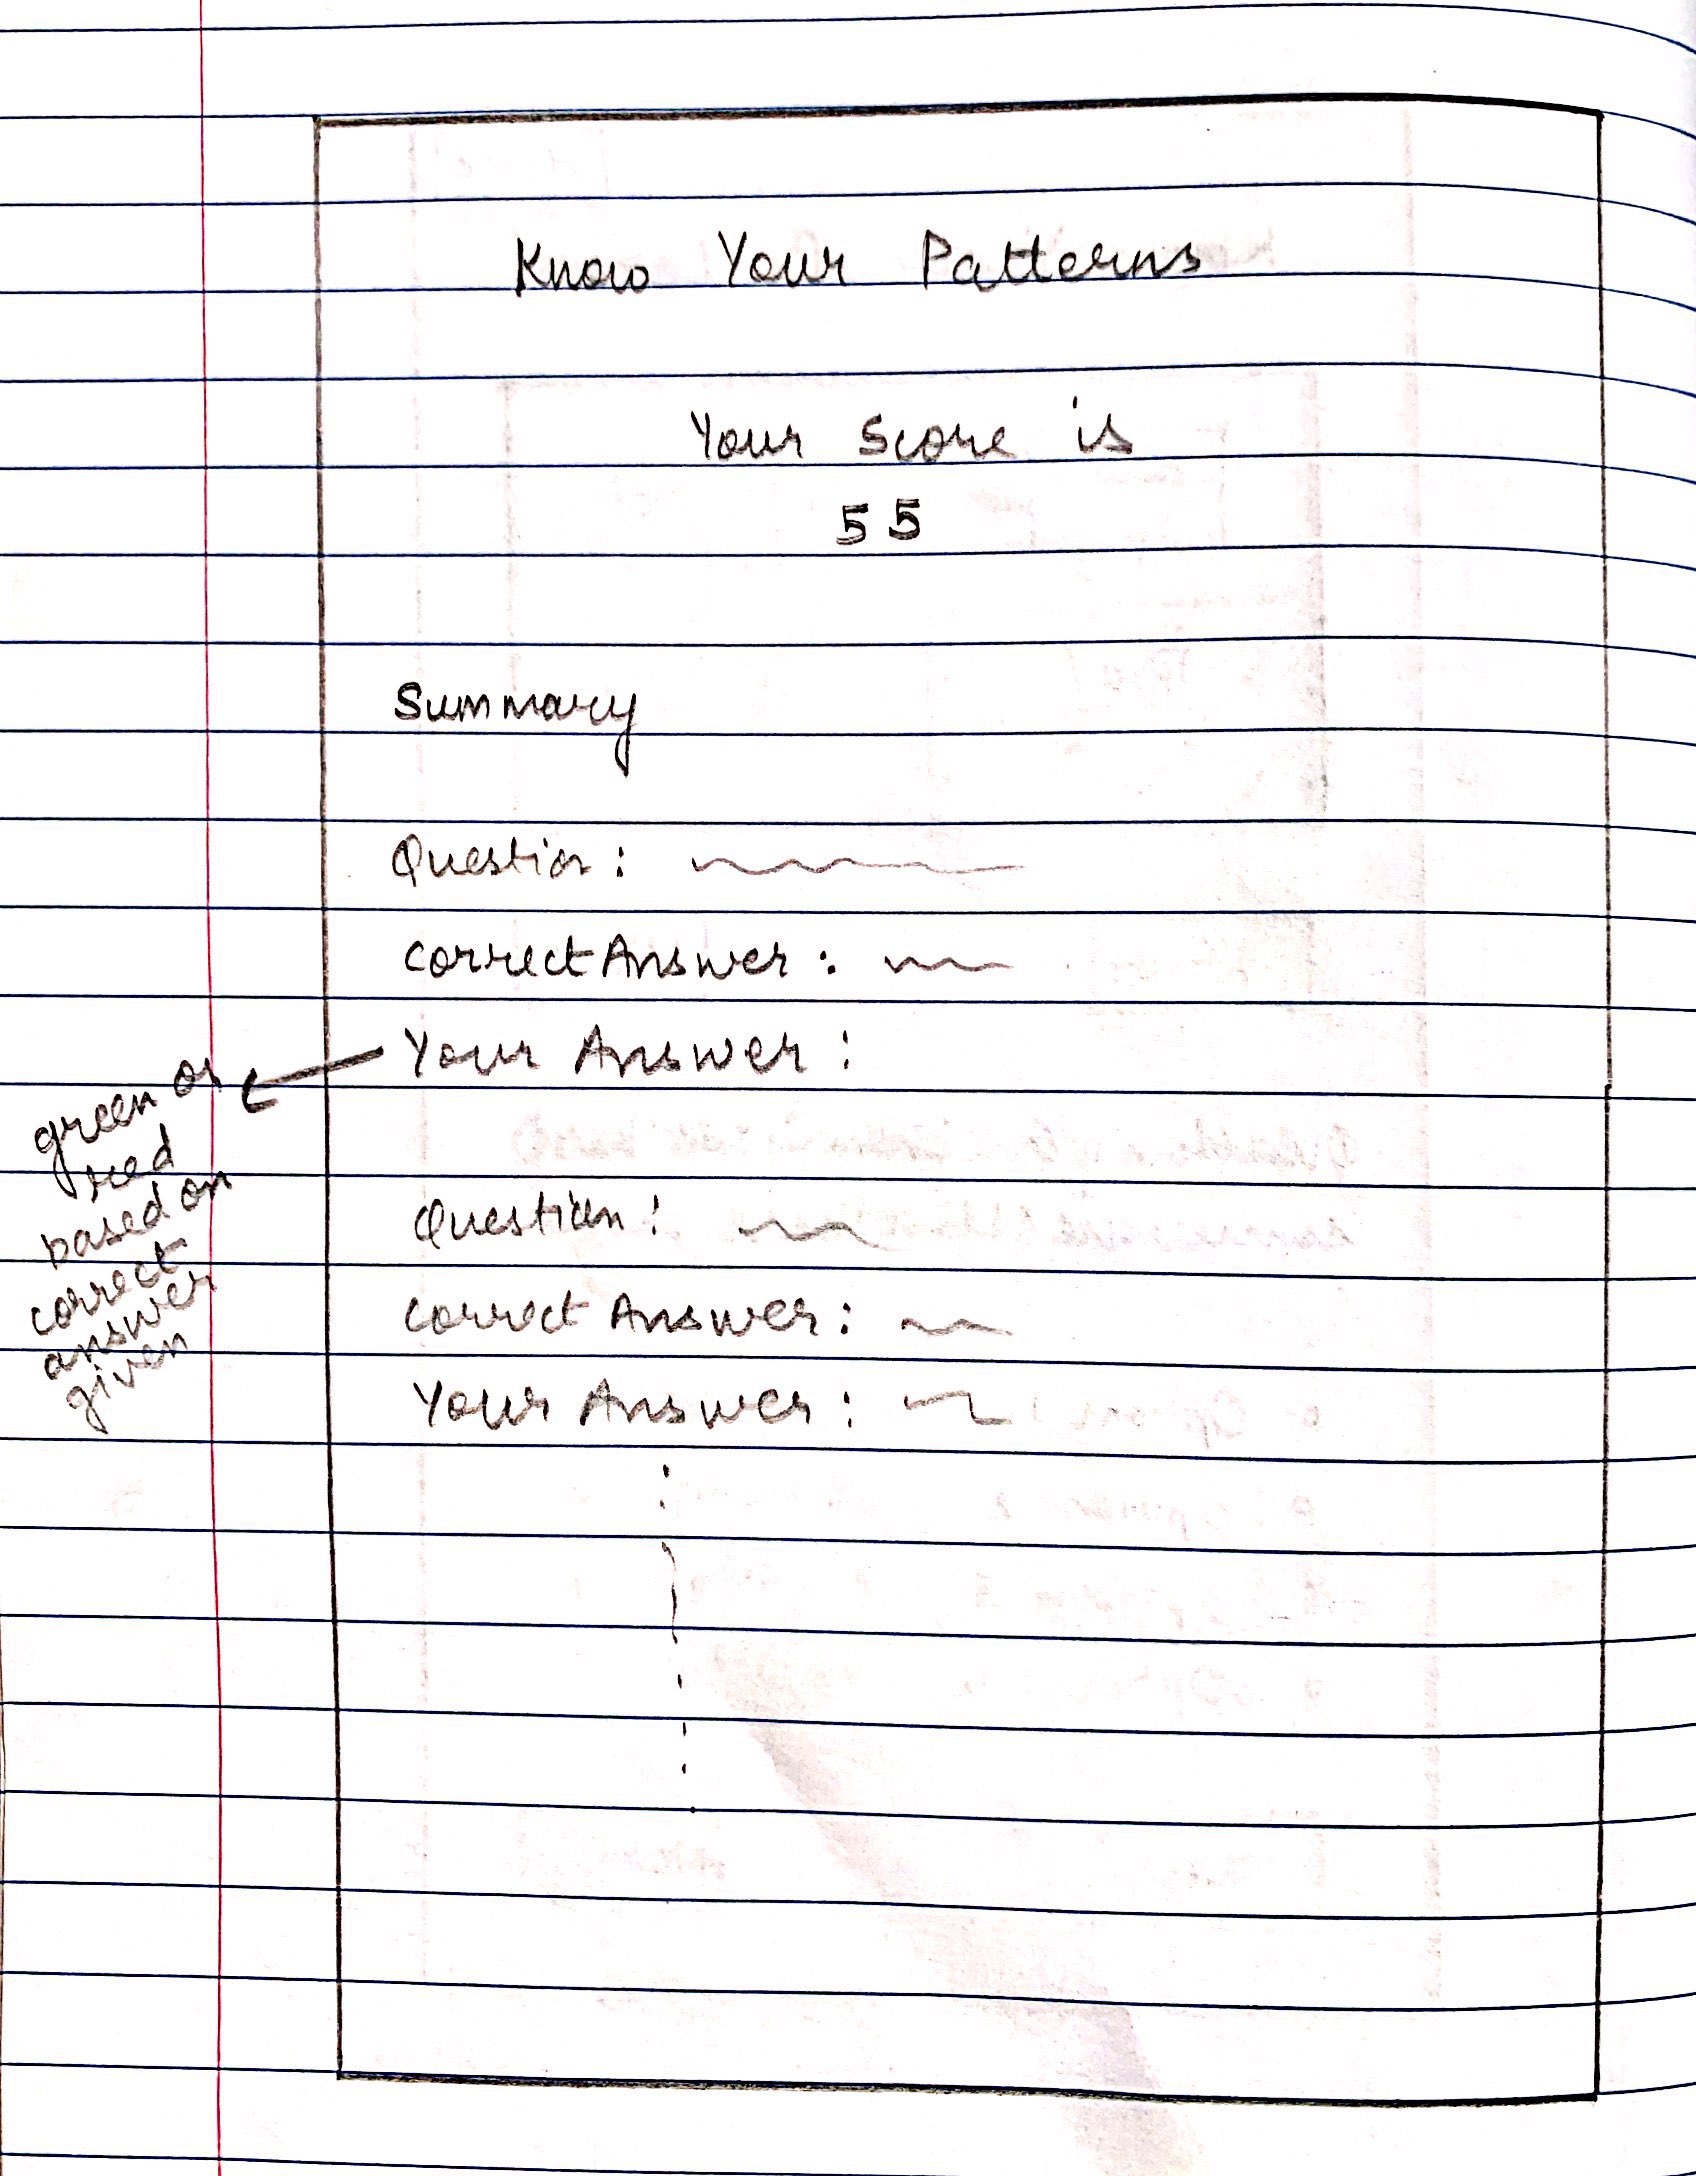 Know Your Patterns
Your Score is
55
Summary
Question :
correct Answer :
Your Answer :
green or
red
based on
correct
answer
given
Question :
correct Answer :
Your Answer :